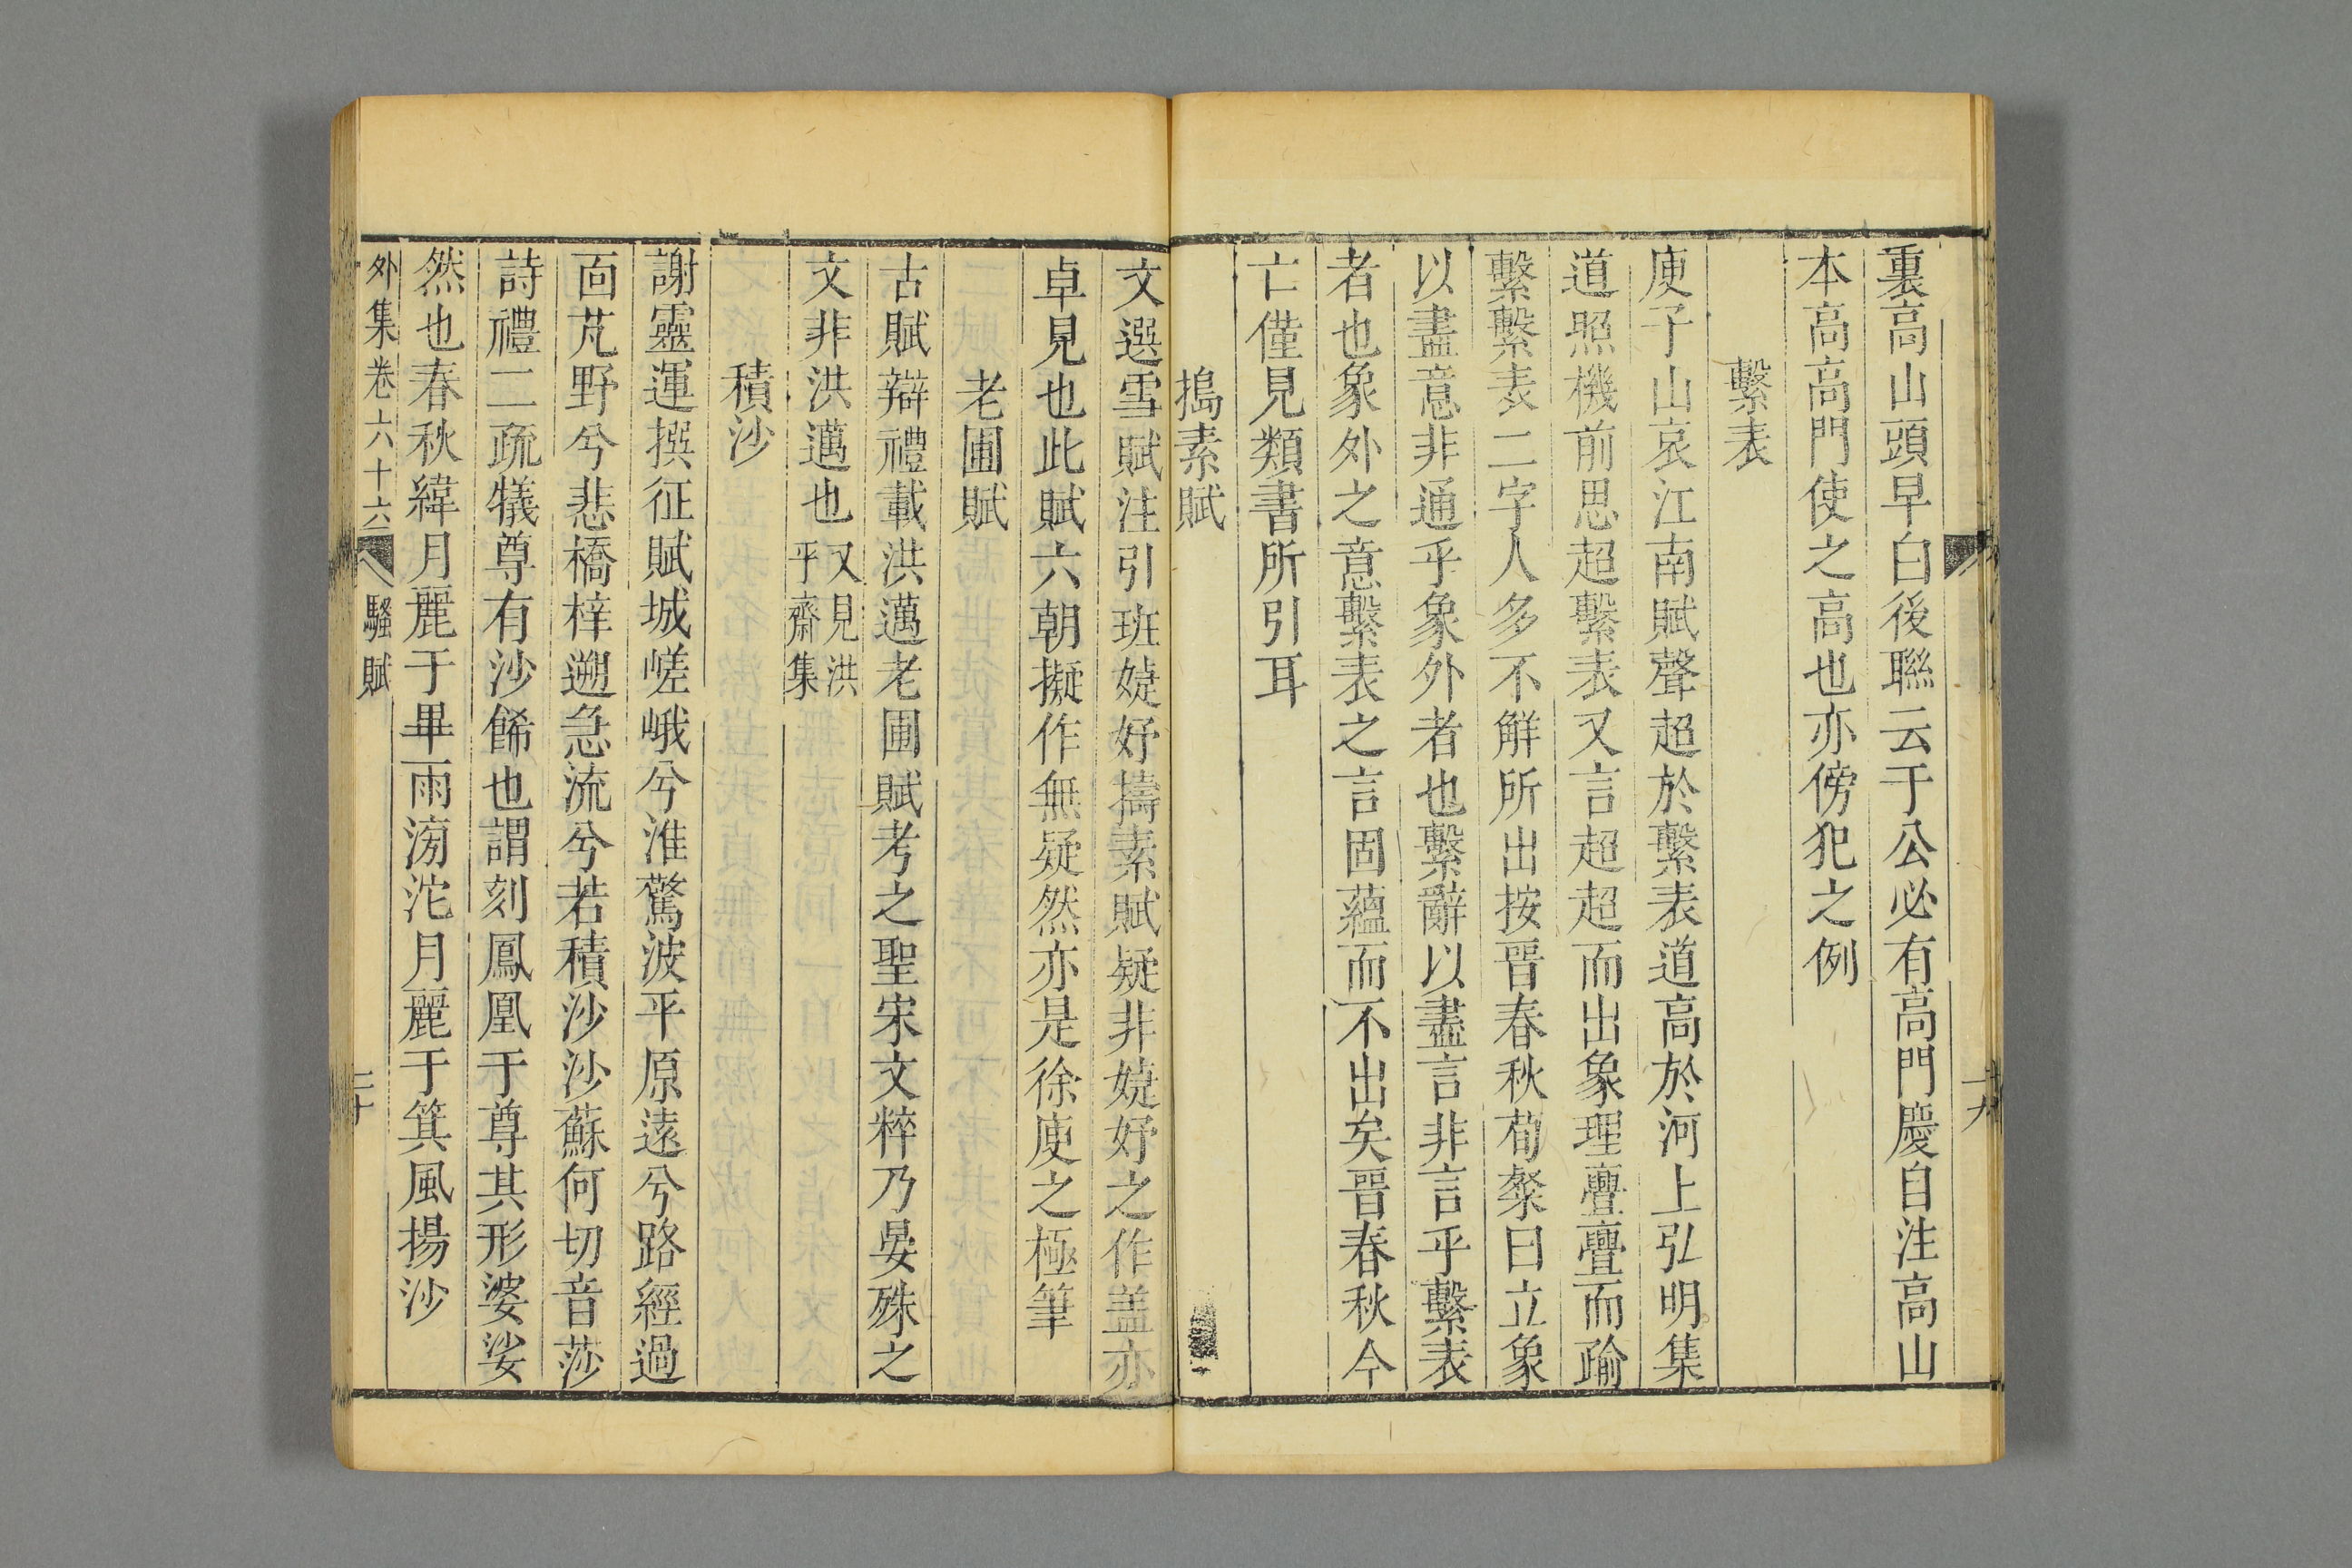 裏高山頭早白後聯云于公必有高門慶自注高山
本高高門使之高也亦傍犯之例
繫表
庾子山哀江南賦聲超於繫表道高於河上弘明集
道照機前思超繫表又言超超而出象理亹亹而踰
繫繫表二字人多不解所出按晉春秋荀粲曰立象
以盡意非通乎象外者也繫辭以盡言非言乎繫表
者也象外之意繫表之言固蘊而不出矣晉春秋今
亡僅見類書所引耳
搗素賦
十九
文選雪賦注引班婕妤擣素賦疑非婕妤之作盖亦
卓見也此賦六朝擬作無疑然亦是徐庾之極筆
老圃賦
古賦辯禮載洪邁老圃賦考之聖宋文粹乃晏殊之
文非洪邁也又見洪
平齋集
積沙
謝靈運撰征賦城嵯峨兮淮驚波平原遠兮路經過
面芃野兮悲橋梓遡急流兮若積沙沙蘇何切音莎
詩禮二疏犧尊有沙餙也謂刻鳳凰于尊其形婆娑
然也春秋緯月麗于畢雨滂沱月麗于箕風揚沙
外集卷六十六 騷賦 二十